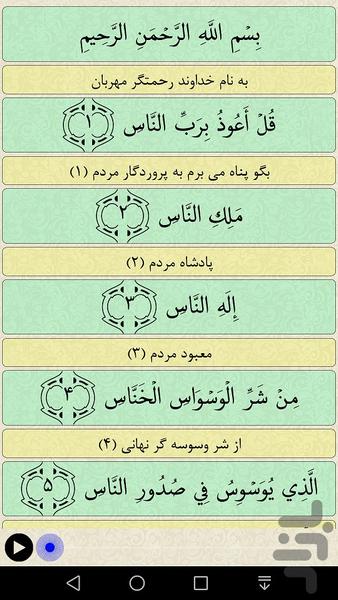 بِسْمِ اللَّهِ الرَّحْمَنِ الرَّحِيمِ
به نام خداوند رحمتگر مهربان
قُلْ أَعُوذُ بِرَبِّ النَّاسِ ۱
بگو پناه می برم به پروردگار مردم (۱)
مَلِكِ النَّاسِ ۲
پادشاه مردم (۲)
إِلَهِ النَّاسِ ۳
معبود مردم (۳)
مِنْ شَرِّ الْوَسْوَاسِ الْخَنَّاسِ ۴
از شر وسوسه گر نهانی (۴)
الَّذِي يُوَسْوِسُ فِي صُدُورِ النَّاسِ ۵